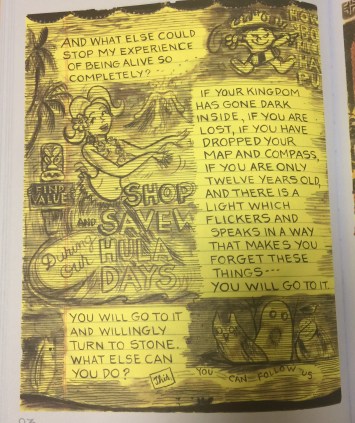 AND WHAT ELSE COULD
STOP MY EXPERIENCE
OF BEING ALIVE SO
COMPLETELY?
IF YOUR KINGDOM
HAS GONE DARK
INSIDE, IF YOU ARE
LOST, IF YOU HAVE
DROPPED YOUR
MAP AND COMPASS,
IF YOU ARE ONLY
TWELVE YEARS OLD,
AND THERE IS A
LIGHT WHICH
FLICKERS AND
SPEAKS IN A WAY
THAT MAKES YOU
FORGET THESE
THINGS---
YOU WILL GO TO IT.
FIND
VALUE
SHOP
AND SAVE
During
Our HULA
DAYS
YOU WILL GO TO IT
AND WILLINGLY
TURN TO STONE.
WHAT ELSE CAN
YOU DO?
YOU CAN FOLLOW US